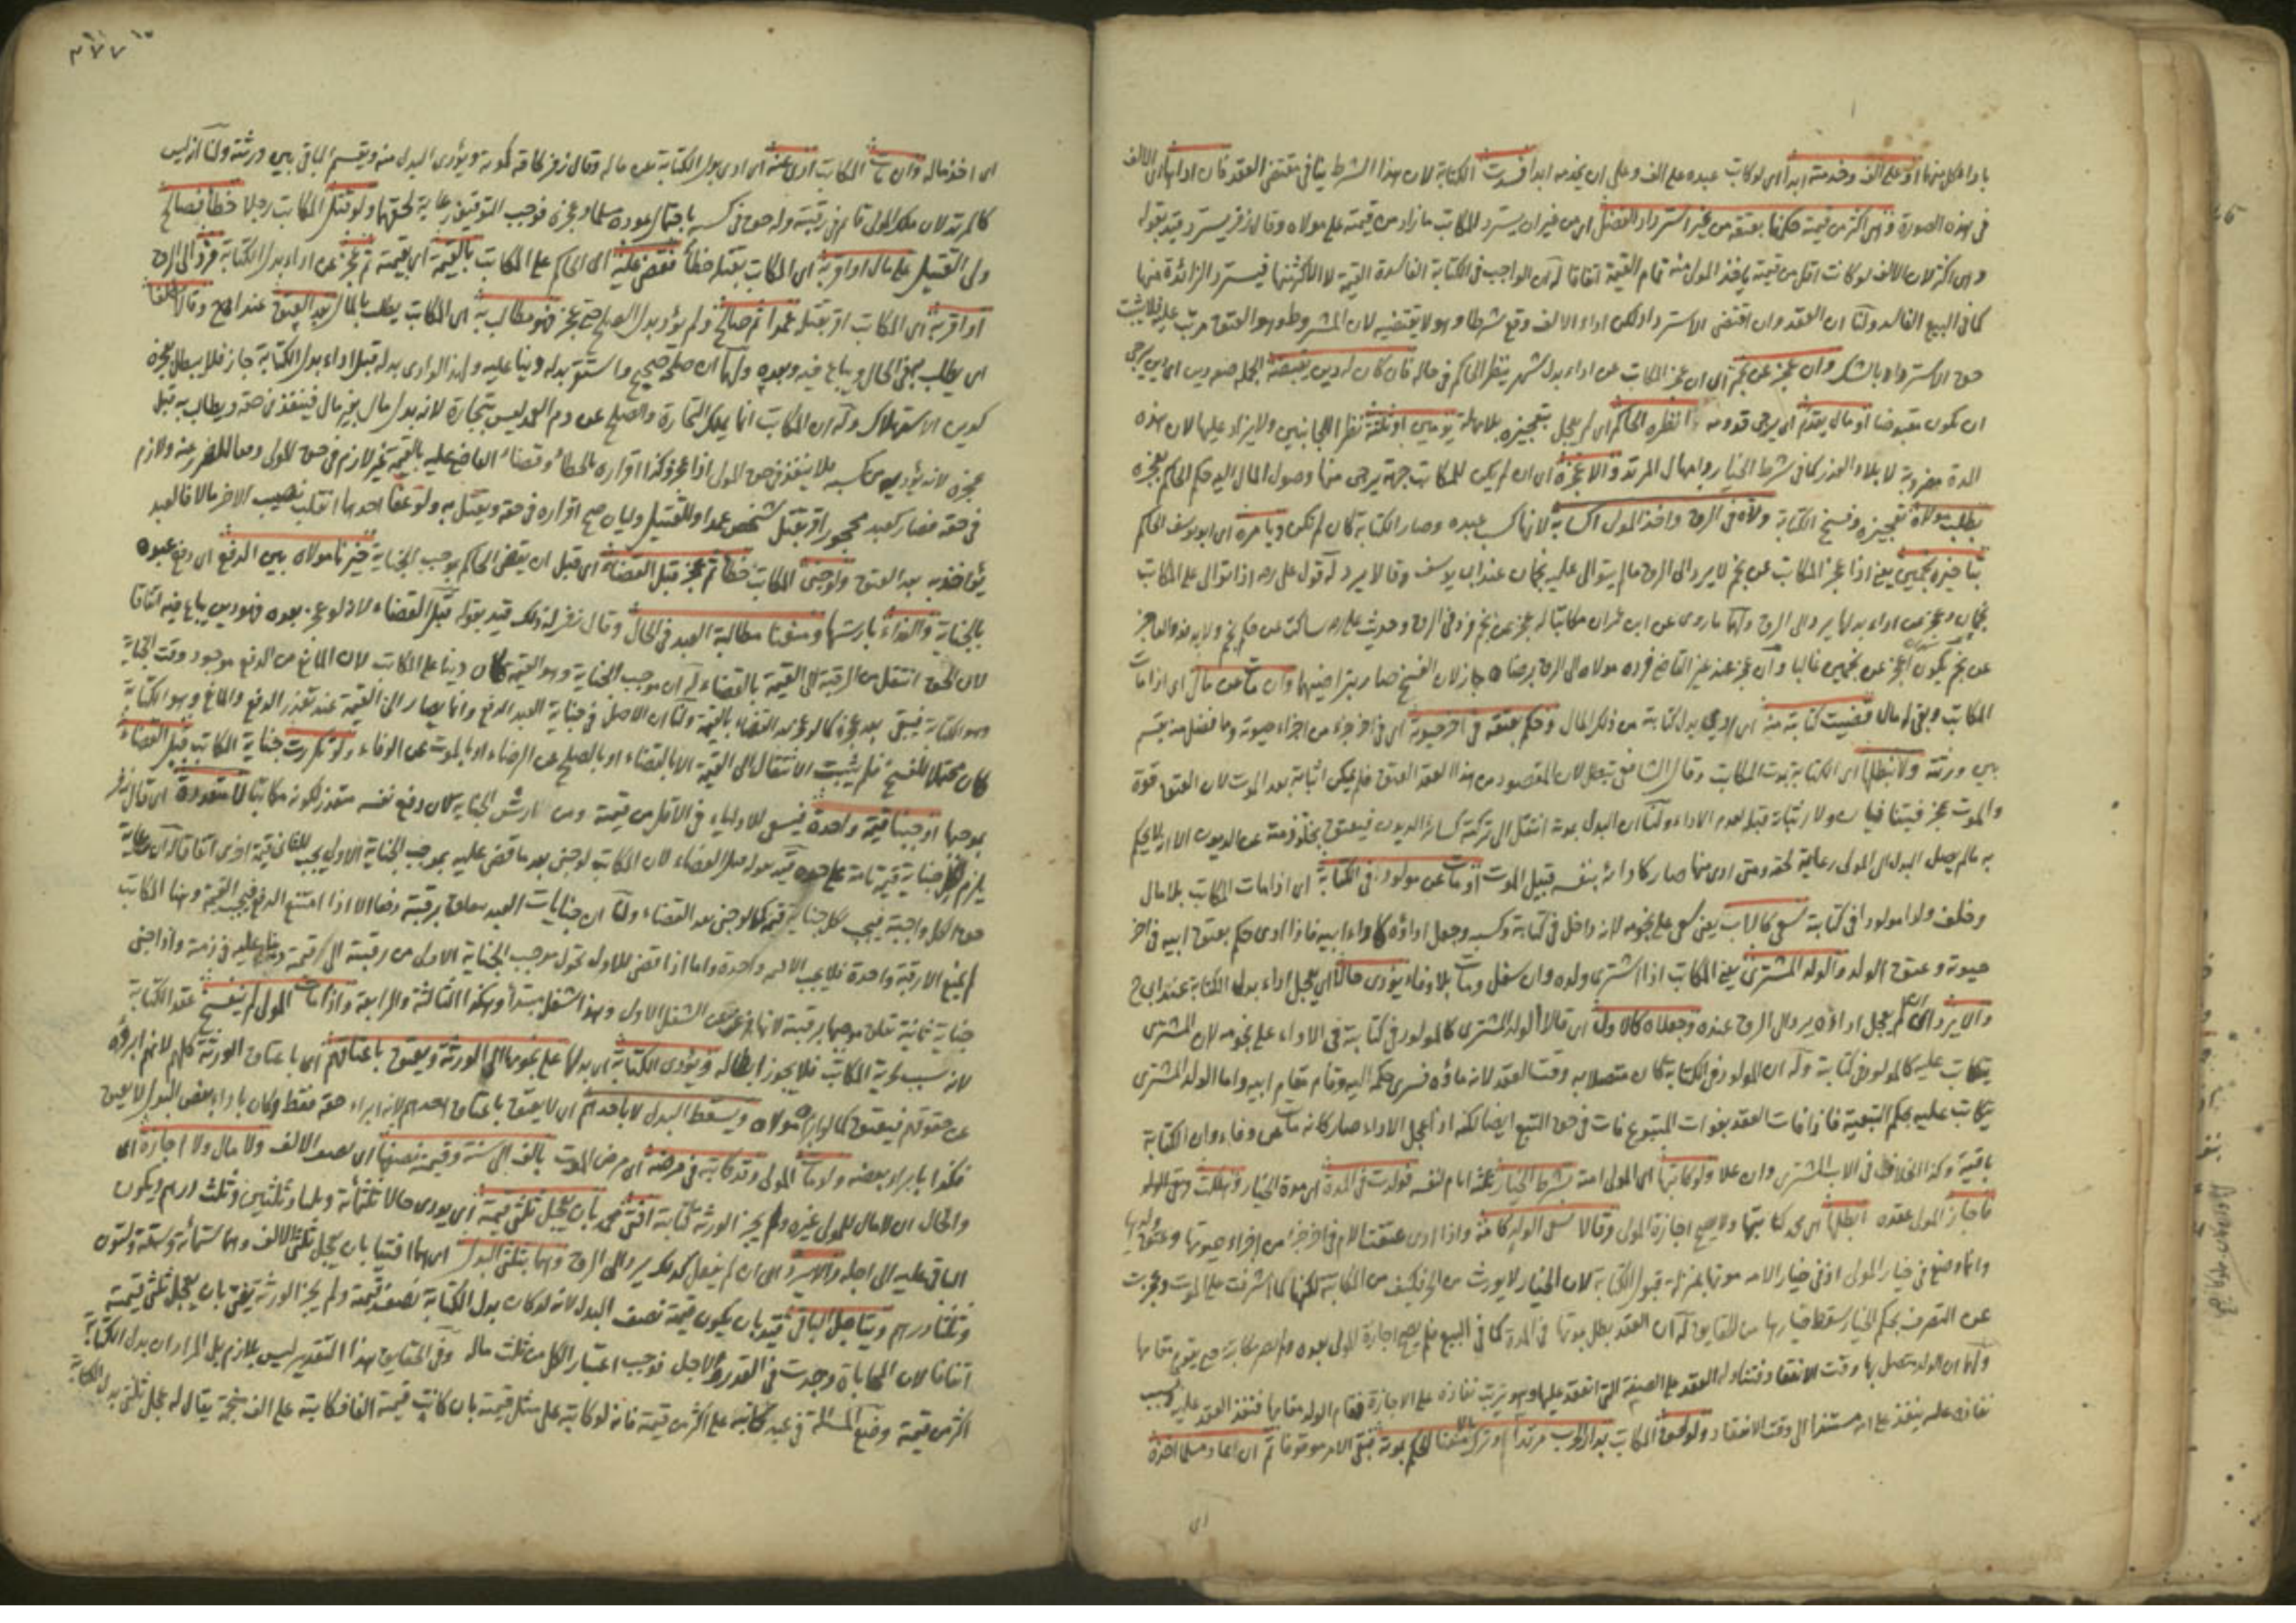 باداء كل منهما او على الف وخدمته ابدا اى لو كاتب عبده على الف وعلى ان يخدمه ابدا فسدت الكتابة لان هذا الشرط ينافى مقتضى العقد فان اداها اى الالف
فى هذه الصورة وهى اكثر من قيمته حكمنا بعتقه من غير استرداد الفضل اى من غير ان يسترد المكاتب ما زاد من قيمته على مولاه وقال زفر يسترد قيد بقوله
وهى اكثر لان الالف لو كانت اقل من قيمته ياخذ المولى منه تمام القيمة اتفاقا له ان الواجب فى الكتابة الفاسدة القيمة لا اكثر منها فيسترد الزائدة منها
كما فى البيع الفاسد ولنا ان العقد وان اقتضى الاسترداد لكن اداء الالف وقع شرطا وهو لا يقتضيه لان المشروط وهو العتق مرتب عليه فلا يثبت
حق الاسترداد بالشك وان عجز عن نجم اى ان عجز المكاتب عن اداء بدل شهر ينظر الحاكم فى حاله فان كان له دين يقبضه
ان يكون مقبوضا او مال يقدم اى يرجى قدومه انظره الحاكم اى لم يعجل بتعجيزه بل امهله يومين او ثلثة نظرا للجانبين ولا يزاد عليها لان هذه
المدة مضروبة لابلاء العذر كما فى شرط الخيار وامهال المرتد والا عجزه اى ان لم يكن للمكاتب جهة يرجى منها وصول المال اليه حكم الحاكم بعجزه
بطلب مولاه تعجيزه وفسخ الكتابة وولاه فى الرق واخذ المولى اكسابه لانها كسب عبده وصار الكتابة كان لم تكن ويامره اى ابو يوسف الحاكم
بتاخيره نجمين يعنى اذا عجز المكاتب عن نجم لا يرد الى الرق ما لم يتوالى عليه نجمان عند ابى يوسف وقالا يرد له قول على رضه اذا توالى على المكاتب
نجمان وعجز عن اداء بدلهما يرد الى الرق ولهما ما روى عن ابن عمر ان مكاتبا له عجز عن نجم فرد فى الرق وحديث على رضه ساكت عن حكم نجم
عن نجم يكون اعجز عن نجمين غالبا وان عجز عند غير القاضى فرده مولاه الى الرق برضاه جاز لان الفسخ صار بتراضيهما وان مات عن مال اى اذا مات
المكاتب وبقى له مال قضيت كتابته منه اى ادى بدل كتابته من ذلك المال وحكم بعتقه فى آخر حيوته اى فى آخر جزء من اجزاء حيوته وما فضل منه يقسم
بين ورثته ولا نبطلها اى الكتابة بموت المكاتب وقال الشافعى تبطل لان المقصود من هذا العقد العتق فلم يمكن اثباته بعد الموت لان العتق قوة
والموت عجز ولنا ان البدل بموته انتقل الى تركته كسائر الديون فيعتق
به ما لم يصل البدل الى المولى رعاية لحقه ومتى ادى منها صار كادائه بنفسه قبيل الموت او مات عن مولود فى الكتابة اى اذا مات المكاتب بلا مال
وخلف ولدا مولودا فى كتابته سعى كالاب يعنى سعى على نجومه لانه داخل فى كتابته وكسبه وجعل اداؤه كاداء ابيه فاذا ادى حكم بعتق ابيه فى آخر
حيوته وعتق الولد والولد المشترى يعنى المكاتب اذا اشترى ولده وان سفل ومات بلا وفاء يؤدى حالا اى يعجل اداء بدل الكتابة عند ابى ح
والا يرد اى ان لم يعجل اداؤه يرد الى الرق عنده وجعلاه كالاول اى قالا الولد المشترى كالمولود فى كتابته فى الاداء على نجومه لان المشترى
يتكاتب عليه كالمولود فى كتابته وله ان المولود فى الكتابة كان متصلا به وقت العقد لانه ماؤه فسرى حكمه اليه وقام مقام ابيه واما الولد المشترى
يتكاتب عليه بحكم التبعية فاذا فات العقد بفوات المتبوع فات فى حق التبع ايضا لكنه اذا عجل الاداء صار كانه مات عن وفاء وان الكتابة
باقية وكذا الخلاف فى الاب المشترى وان علا ولو كاتبها اى المولى امته بشرط الخيار ثلثة ايام لنفسه فولدت فى المدة اى مدة الخيار وهلكت وبقى الولد
فاجاز المولى عقده ابطلها اى محمد كتابتها ولا يصح اجازة المولى وقالا يسعى الولد مكانه واذا ادى عتقت الام فى آخر جزء من اجزاء حيوتها وعتق ولدها
وانما وضع فى خيار المولى اذ فى خيار الامة موتها بمنزلة قبول الكتابة لان الخيار لا يورث
عن التصرف بحكم الخيار سقط خيارها من الحقايق له ان العقد بطل بموتها فى المدة كما فى البيع فلم يصح اجازة المولى بعده
ولهما ان الولد متصل بها وقت الانعقاد فتناوله العقد على الصفة التى انعقد عليها وهو ترتب نفاذه على الاجازة فقام الولد مقامها فنفذ العقد عليه
نفاذه عليه ينفذ على امه مستندا الى وقت الانعقاد ولو لحق المكاتب بدار الحرب مرتدا وترك مالا منعنا الحكم بموته فبقى الامر موقوفا ثم ان عاد مسلما اخذه
اى
٣٧٧
اى اخذ ماله وان مات المكاتب ادى عنه اى ادى بدل الكتابة من ماله وقال زفر كما قه بموته ويؤدى البدل منه ويقسم الباقى بين ورثته ولنا انه ليس
كالمرتد لان ملك المولى قائم فى رقبته وله حق فى كسبه باحتمال عوده مسلما وعجزه فوجب التوقيف رعاية لحقهما ولو قتل المكاتب رجلا خطأ فصالح
ولى القتيل على مال او اقر به اى المكاتب بقتله خطأ فقضى عليه اى الحاكم على المكاتب بالقيمة اى بقيمته ثم عجز عن اداء بدل الكتابة فرد الى الرق
او اقر به اى المكاتب اقر بقتله عمدا ثم صالح ولم يؤد بدل الصلح حتى عجز فهو مطالب به اى المكاتب يطالب بالمال بعد العتق عند ابى ح وقالا مطلقا
اى يطالب به فى الحال ويباع فيه وبعده ولهما ان صلحه صحيح واستحق بدله دينا عليه ولهذا لو ادى بدله قبل اداء بدل الكتابة جاز فلا يبطل بعجزه
كدين الاستهلاك وله ان المكاتب انما يملك التجارة والصلح عن دم العمد ليس بتجارة لانه بدل مال بغير مال فينفذ فى حقه ويطالب به قبل
عجزه لانه يؤديه من كسبه فلا ينفذ فى حق المولى اذا عجز وكذا اقراره بالخطأ وقضاء القاضى عليه بالقيمة غير لازم فى حق المولى دفعا للضرر عنه ولازم
فى حقه فصار كعبد محجور اقر بقتل شخص عمدا وللقتيل وليان صح اقراره فى حقه ويقتل به ولو عفا احدهما انقلب نصيب الآخر مالا فالعبد
يؤاخذ به بعد العتق ولو جنى المكاتب خطأ ثم عجز قبل القضاء اى قبل ان يقضى الحاكم بموجب الجناية خيرنا مولاه بين الدفع اى دفع عبده
بالجناية والفداء بارشها ومنعنا مطالبة العبد فى الحال وقال زفر له ذلك قيد بقوله قبل القضاء لانه لو عجز بعده فهو دين يباع فيه اتفاقا
لان الحق انتقل من الرقبة الى القيمة بالقضاء له ان موجب الجناية وهو القيمة كان دينا على المكاتب لان المانع من الدفع موجود وقت الجناية
وهو الكتابة فيبقى بعد عجزه كما لو عجز بعد القضاء بالقيمة ولنا ان الاصل فى جناية العبد الدفع وانما يصار الى القيمة عند تعذر الدفع والمانع وهو الكتابة
كان محتملا للفسخ فلم يثبت الانتقال الى القيمة الا بالقضاء او بالصلح عن الرضاء او بالموت عن الوفاء ولو تكررت جناية المكاتب قبل القضاء
بموجبها اوجبنا قيمة واحدة فيسعى للاولياء فى الاقل من قيمته ومن ارش الجناية لان دفع نفسه متعذر لكونه مكاتبا لا متعددة اى قال زفر
يلزم لكل جناية قيمة تامة على حدة قيد بقوله قبل القضاء لان المكاتب لو جنى بعد ما قضى عليه بموجب الجناية الاولى يجب للثانى قيمة اخرى اتفاقا
حق الكل واجبة فيجب لكل جناية قيمة كما لو جنى بعد القضاء ولنا ان جنايات العبد يتعلق برقبته دفعا الا اذا امتنع الدفع فيجب القيمة وهنا المكاتب
لم يمنع الا رقبة واحدة فلا يجب الا قيمة واحدة واما اذا قضى للاول تحول موجب الجناية الاولى من رقبته الى قيمة دينا عليه فى ذمته واذا جنى
جناية ثانية تعلق موجبها برقبته لانها فرغت عن الشغل الاول وهذا شغل مبتدأ وهكذا الثالثة والرابعة واذا مات المولى لم ينفسخ عقد الكتابة
لانه سبب حرية المكاتب فلا يجوز ابطاله ويؤدى الكتابة اى بدلها على نجومها الى الورثة ويعتق باعتاقهم اى باعتاق الورثة كلهم لانهم ابرؤه
عن حقوقهم فيعتق كما لو ابرأه مولاه ويسقط البدل لا باحدهم اى لا يعتق باعتاق احدهم لانه ابراء حقه فقط وكان باداء بعض البدل لا يعتق
فكذا بابراء بعضه ولو مات المولى وقد كاتبه فى مرضه اى مرض الموت بالف الى سنة وقيمته نصفها اى نصف الالف ولا مال ولا اجازة اى
والحال ان لا مال للمولى غيره ولم يجز الورثة كتابته افتى محمد بان يعجل ثلثى قيمته اى يؤدى حالا ثلثمائة وثلثا وثلثين وثلث درهم ويكون
الباقى عليه الى اجله والا يرد اى ان لم يفعل كذلك يرد الى الرق وهما بثلثى البدل اى هما افتيا بان يعجل ثلثى الالف وهما ستمائة وستة وستون
وثلثا درهم ويتاجل الباقى قيد بان يكون قيمته نصف البدل لانه لو كان بدل الكتابة نصف قيمته ولم يجز الورثة يفتى بان يعجل ثلثى قيمته
اتفاقا لان المحاباة وجدت فى القدر والاجل فوجب اعتبار الكل من ثلث ماله وفى الحقايق هذا التقدير ليس بلازم بل المراد ان بدل الكتابة
اكثر من قيمته وضع المسئلة فى عبد كاتبه على اكثر من قيمته فانه لو كاتبه على مثل قيمته بان كانت قيمته الفا فكاتبه على الف منجمة يقال له عجل ثلثى بدل الكتابة